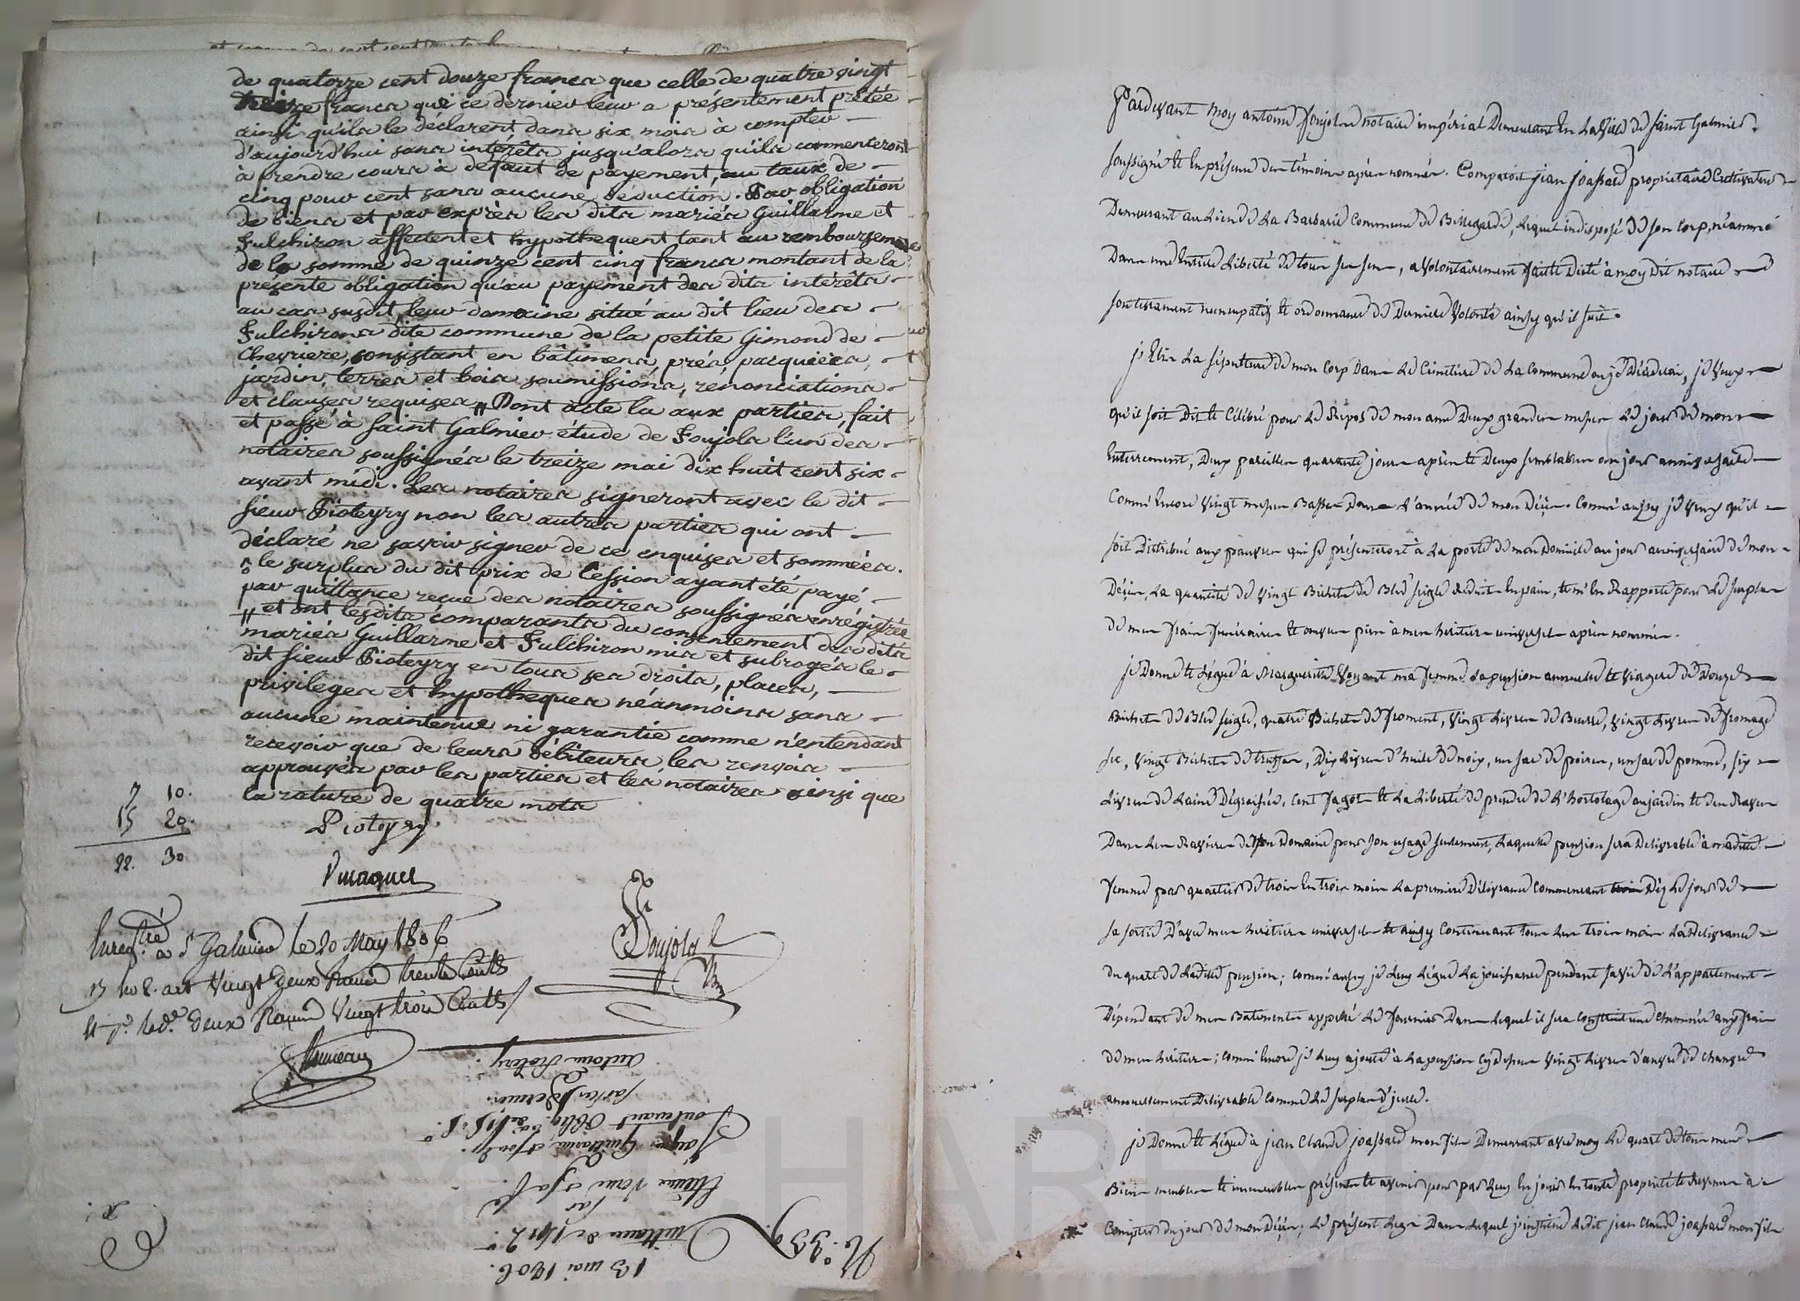 de quatorze cent douze francs que celle de quatre vingt
treize francs que ce dernier leur a présentement prêtée
ainsi qu'ils le déclarent dans six mois à compter
d'aujourd'hui sans intérêts jusqu'alors qu'ils commenceront
à prendre cours à défaut de payement, au taux de
cinq pour cent sans aucune déduction. Par obligation
de biens et par exprès les dits mariés Guillarme et
Fulchiron affectent et hypothequent tant au remboursement
de la somme de quinze cent cinq francs montant de la
présente obligation qu'au payement des dits intérêts
au cas susdit, leur domaine situé au dit lieu des
Fulchirons dite commune de la petite Gimond de
Chevriere, consistant en bâtimens, prés, pacquiers,
jardin, terres et bois soumissions, renonciations
et clauses requises, Dont acte lu aux parties, fait
et passé à Saint Galmier étude de Foujols l'un des
notaires soussignés le treize mai dix huit cent six
avant midi. Les notaires signeront avec le dit
sieur Pioteyry non les autres parties qui ont
déclaré ne savoir signer de ce enquises et sommées.
le surplus du dit prix de cession ayant été payé
par quittance reçue des notaires soussignés enrégistrée
et ont lesdits comparants du consentement des dits
mariés Guillarme et Fulchiron mis et subrogés le
dit sieur Pioteyry en tous ses droits, places,
privilèges et hypotheques néanmoins sans
aucune maintenue ni garantie comme n'entendant
recevoir que de leurs débiteurs les renvois
approuvés par les parties et les notaires ainsi que
la rature de quatre mots
7 10.
15 20.
22. 30
Pioteyry
Foujols
Enreg.tré à St Galmier le 20 May 1806
Vingt deux francs trente Cent.es
deux francs Vingt trois Cent.es
13 mai 1806.
Quittance de 1412
par
N.° 239
Pardevant moy antoine Foujols notaire impérial Demeurant En La Ville de Saint Galmier
soussigné et En présence des témoins après nommés. Comparoit jean joassard propriétaire Cultivateur
Demeurant au Lieu de La Barbarie Commune de Bellegarde, Lequel indisposé de son Corps, néanmoins
Dans une Entiere Liberté de tous ses sens, a Volontairement fait et dicté à moy dit notaire
son testament nuncupatif et ordonnance de Derniere Volonté ainsy qu'il suit.
je Elis La sépulture de mon Corps Dans Le Cimetiere de La Commune ou je Décéderai, je Veux
qu'il soit Dit et Célébré pour Le Repos de mon ame Deux grandes messes Le jour de mon
Enterrement, Deux pareilles quarante jours après et Deux semblables au jour anniversaire
Comme Encore Vingt messes Basses Dans L'année de mon Décès. Comme aussy je Veux qu'il
soit Distribué aux pauvres qui se présenteront à La porte de mon Domicile au jour anniversaire de mon
Décès, La quantité de Vingt Bichets de Bled seigle Réduit En pain, et m'En Rapporte pour Le surplus
de mes frais funéraires et œuvres pies à mon héritier universel après nommé.
je Donne et Legue à Marguerite Voyant ma femme La pension annuelle et Viagere de Douze
Bichets de Bled seigle, quatre Bichets de froment, Vingt Livres de Beurre, Vingt Livres de fromage
sec, Vingt Bichets de truffes, Dix Livres d'huile de noix, un sac de poires, un sac de pommes, six
Livres de Laine Dégraissée, Cent fagots et La Liberté de prendre de L'hortolage au jardin et des Raves
Dans Les Ravieres de Mon Domaine pour son usage seulement, Laquelle pension sera Delivrable à madite
femme par quartier de trois En trois mois La premiere Délivrance Commencant Dès Le jour de
sa sortie D'avec mon héritier universel et ainsy Continuant tous Les trois mois La Délivrance
du quart de Ladite pension; Comme aussy je Luy Legue La jouissance pendant sa vie de L'appartement
Dépendant de mes Batiments appellé Le fournier Dans Lequel il sera Construit une Cheminée aux frais
de mon héritier; Comme Encore je Luy ajoute à La pension Cy dessus Vingt Livres d'œuvre de Chanvre
annuellement Delivrable Comme Le surplus d'jcelle.
je Donne et Legue à jean Claude joassard mon fils Demeurant avec moy Le quart de tous mes
Biens meubles et immeubles présents et avenir pour par Luy En jouir En toute propriété et Revenu à
Compter du jour de mon Décès; Le présent Legs Dans Lequel j'institue Ledit jean Claude joassard mon fils
CHAREYRON